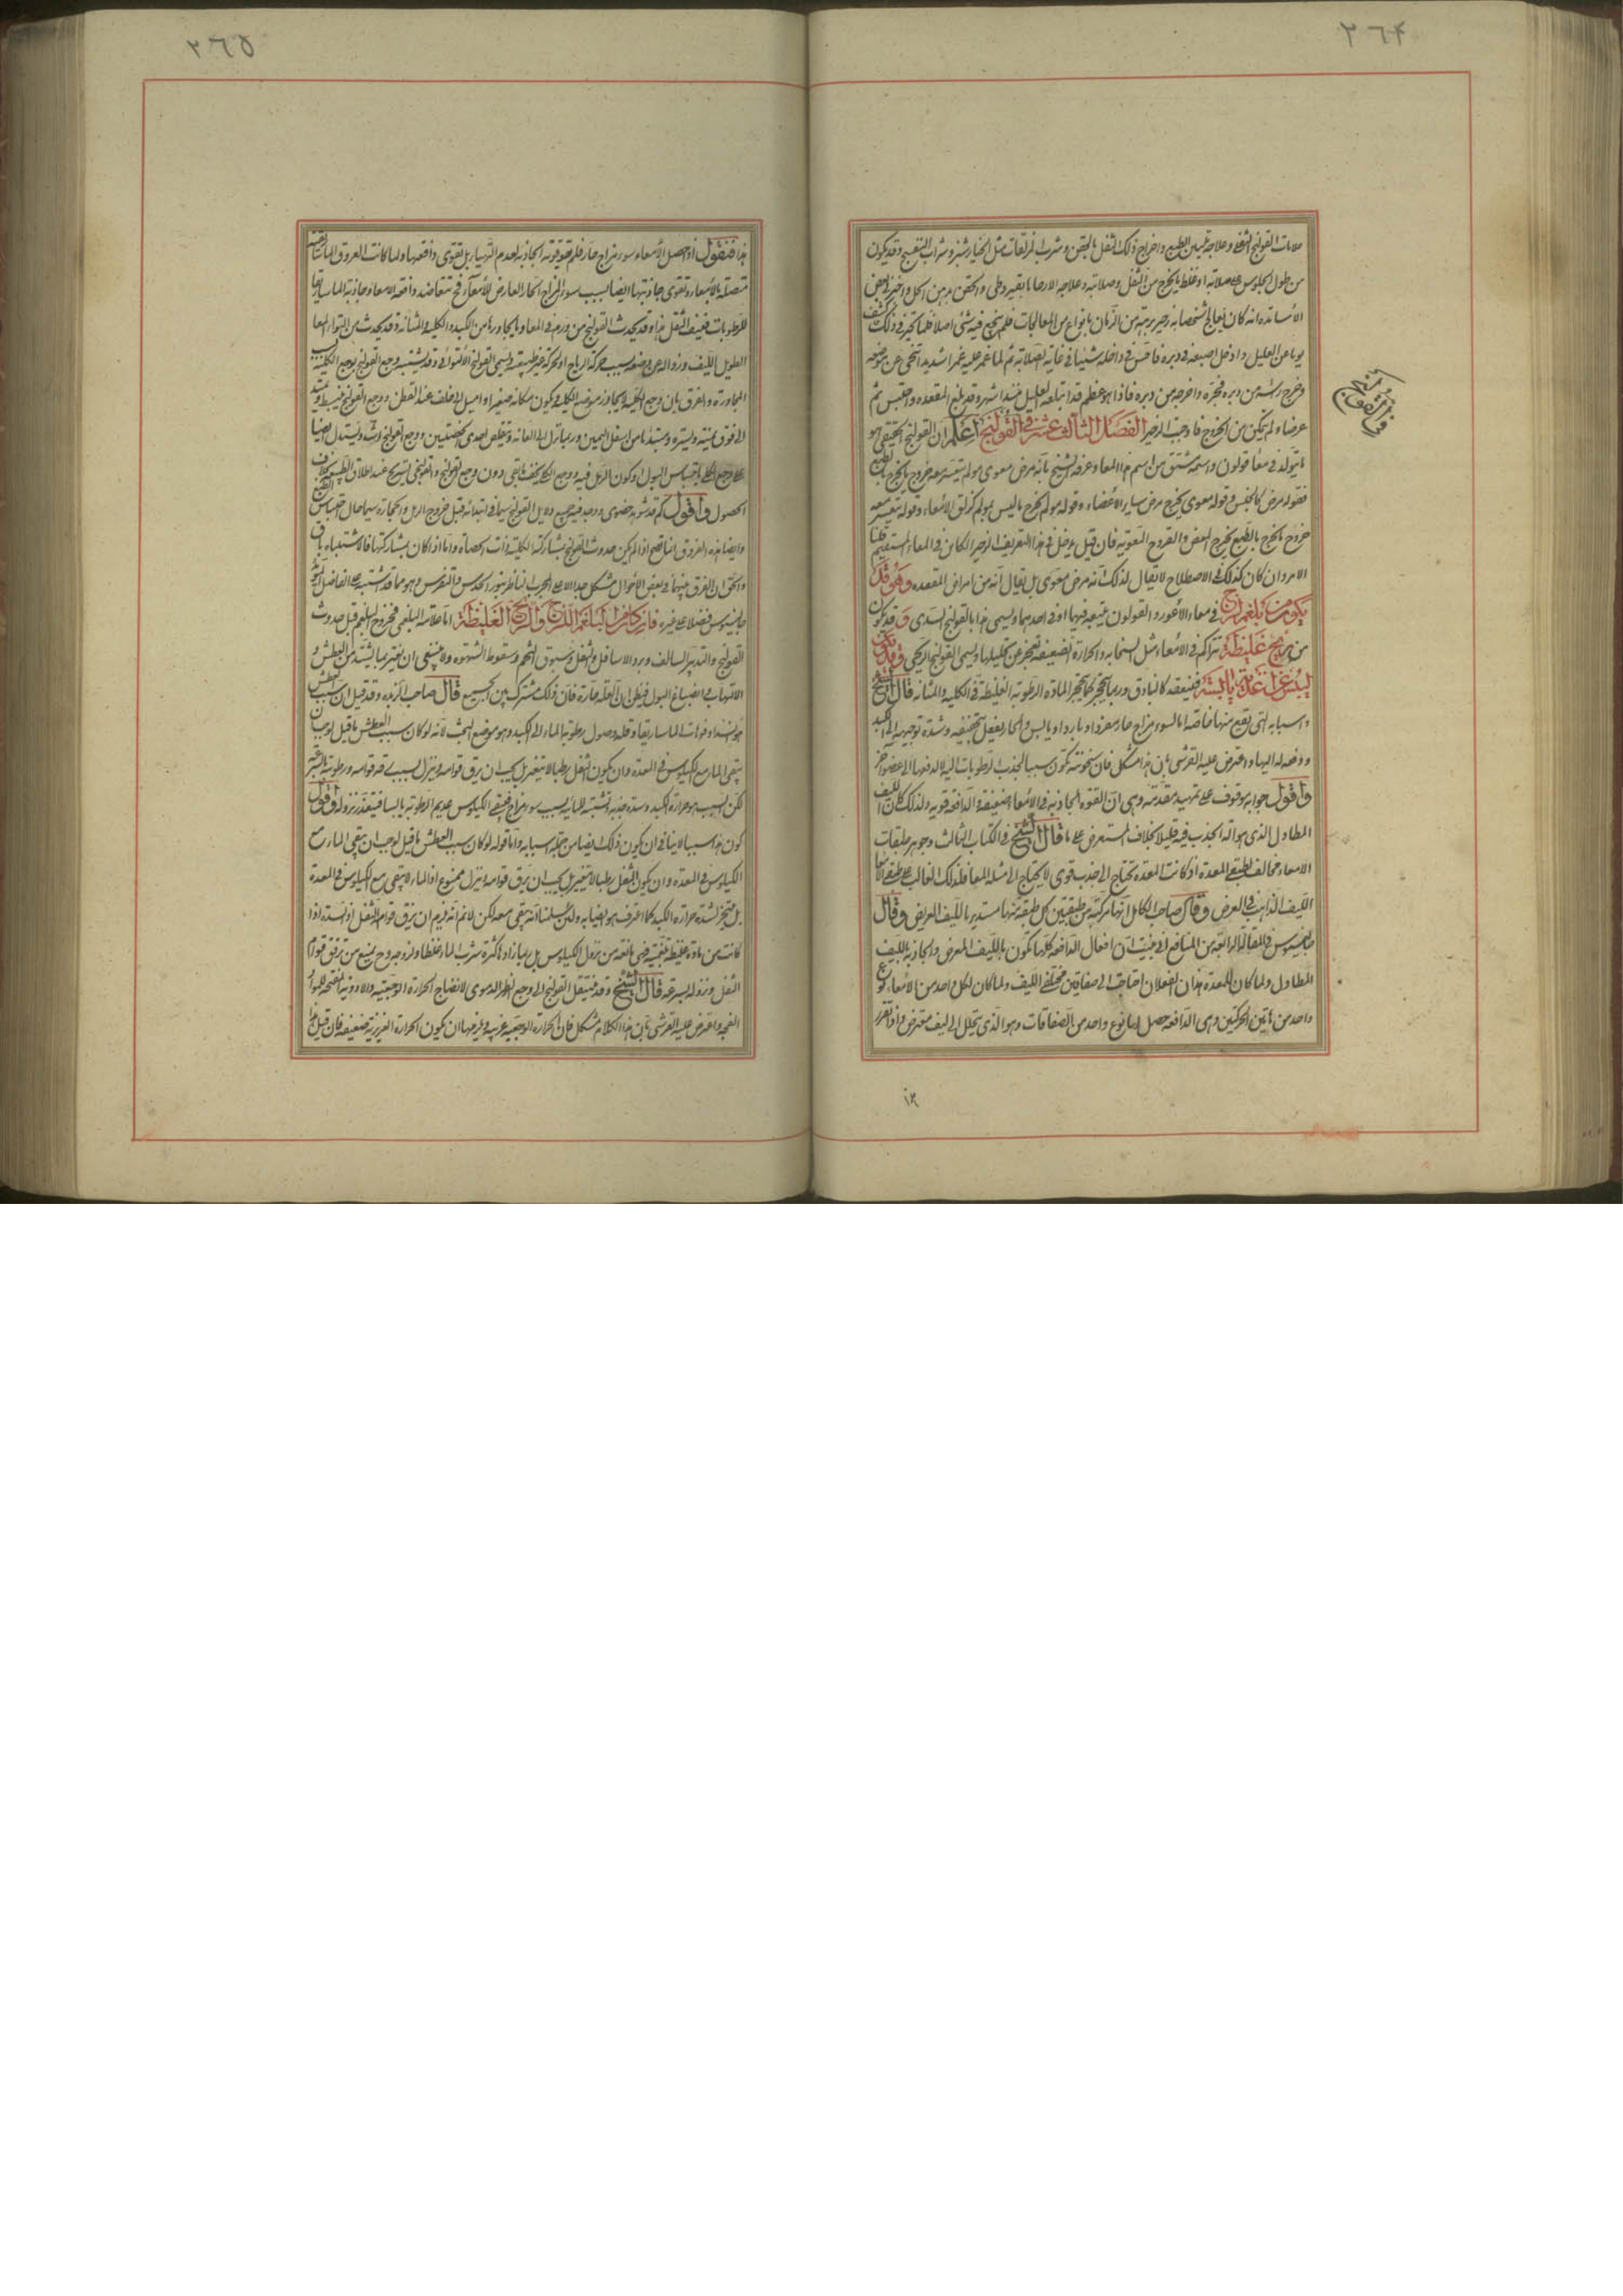 ٢٦٤
علامات القولنج الثفلى وعلاجه تليين الطبع واخراج ذلك الثفل بالحقن وشرب المزلقات مثل الخيارشنبر وشراب البنفسج وقد يكون
من طول الجلوس على صلابة او غلظ ما يخرج من الثفل وصلابته وعلاجه الارخاء بالقيروطى والحقن من الخل واخبرنى بعض
الأساتذة انه كان يعالج شخصا به زحير برهة من الزمان بانواع من المعالجات فلم ينجع فيه شئ اصلا فلما تحير فى ذلك كشف
يوما عن العليل وادخل اصبعه فى دبره فاحس فى داخله شيئا فى غاية الصلابة ثم لما غمز عليه غمزا شديدا تنحى عن موضعه
وخرج راسه من دبره فجره واخرجه من دبره فاذا هو عظم قد ابتلعه العليل منذ اشهر وقد بلغ المقعدة واحتبس ثم
عرضا ولم يمكن من الخروج فاوجب الزحير الفصل الثالث عشر فى القولنج اعلم ان القولنج الحقيقى هو
ما يتولد فى معا قولون واسمه مشتق من اسم هذا المعا وعرفه الشيخ بانه مرض معوى مولم يتعسر معه خروج ما يخرج بالطبع
فقوله مرض كالجنس وقوله معوى يخرج مرض ساير الأعضاء وقوله مولم يخرج ما ليس بمولم كزلق الأمعاء وقوله يتعسر معه
خروج ما يخرج بالطبع يخرج المغص والقروح المعوية فان قيل يدخل فى هذا التعريف الزحير الكاين فى المعاء المستقيم قلنا
الامر وان كان كذلك فى الاصطلاح لا يقال لذلك انه مرض معوى بل يقال انه من امراض المقعدة وهو قد
يكون من بلغم لزج فى معاء الأعور والقولون يحتبس فيهما او فى احدهما ويسمى هذا بالقولنج السدى وقد يكون
من ريح غليظة تتراكم فى الأمعاء مثل السحاب والحرارة الضعيفة تعجز عن تحليلها ويسمى القولنج الريحى وقد يكون
ليبس عن اغذية يابسة فيبعقده كالبنادق وربما تحجر كما تتحجر المادة الرطوبة الغليظة فى الكلية والمثانة قال الشيخ
واسبابه التى تقع منها خاصة اما لسوء مزاج حار مفرد او بارد او يابس والحار يفعل بتجفيفه وشدة توجيهه الى الكبد
ودفعه له اليها واعترض عليه القرشى بان هذا مشكل فان سخونته تكون سببا لجذب الرطوبات اليه لا لدفعها الى عضو آخر
واقول جوابه موقوف على تمهيد مقدمة وهى ان القوة الجاذبة فى الأمعاء ضعيفة والدافعة قوية ولذلك كان الليف
المطاول الذى هو آلة الجذب فيه قليلا بخلاف المستعرض على ما قال الشيخ فى الكتاب الثالث وجوهر طبقات
الامعاء مخالف لطبقتى المعدة اذ كانت المعدة تحتاج الى جذب قوى لا يحتاج الى مثله المعا فلذلك الغالب على طبقتى الامعا
الليف الذاهب فى العرض وقال صاحب الكامل انها مركبة من طبقتين كل طبقة منها مستدير بالليف العريض وقال
جالينوس فى المقالة الرابعة من المنافع الى حيث ان افعال الدافعة كلها تكون بالليف المعرض والجاذبة بالليف
المطاول ولما كان للمعدة هذان الفعلان احتاجت الى صفاقين مختلفى الليف ولما كان لكل واحد من الأمعاء نوع
واحد من هاتين الحركتين وهى الدافعة حصل لها نوع واحد من الصفاقات وهو الذى يتحلل الى ليف معترض واذا تقرر
٢٦٥
هذا فنقول اذا حصل للأمعاء سوء مزاج حار فلم تقو قوته الجاذبة لعدم التهيا بل تقوى دافعتها ولما كانت العروق الماساريقية
متصلة بالأمعاء وتقوى جاذبتها ايضا بسبب سوء المزاج الحار العارض للأمعاء فح تتعاضد دافعة الامعا وجاذبة الماساريقا
للرطوبات فيجف الثفل هذا وقد يحدث القولنج من ورم فى المعا او بالمجاورة من الكبد والكلية والمثانة وقد يحدث من التواء المعا
الطويل الليف وزواله عن وضعه بسبب حركة الرياح او لحركة غير طبيعية ويسمى القولنج الالتوائى وقد يشتبه وجع القولنج بوجع الكلية بسبب
المجاورة والفرق بان وجع الكلية لا يجاوز موضع الكلية ويكون مكانه صغيرا واميل الى خلف عند القطن ووجع القولنج ينبسط ويمتد
الى فوق يمنة ويسرة ويبتدئ من اسفل اليمين وربما نزل الى العانة وتقلص احدى الخصيتين ووجع القولنج اشد ويستدل ايضا
على وجع الكلى باحتباس البول او كون الرمل فيه ووجع الكلى يخف بالقى دون وجع القولنج والقولنجى يستريح عند اطلاق الطبيعة بخلاف
الحصوى واقول
وايضا هذه الفروق انما تصح اذا لم يكن حدوث القولنج بمشاركة الكلية ذات الحصاة واما اذا كان بمشاركتها فالاشتباه باق
والحق ان الفرق بينهما فى بعض الأحوال مشكل جدا الا على المجرب الناظر بنور الحدس والتفرس وهو مما قد اشتبه على الفاضل
جالينوس فضلا عن غيره فان كان من البلغم اللزج والريح الغليظة اما علامة البلغمى فخروج البلغم قبل حدوث
القولنج والتدبير السالف وبرد الاسافل والثفل وسبوق التخم وسقوط الشهوة ولا ينبغى ان يغتر بما يشتد من العطش و
الالتهاب فى انصباغ البول فيظن ان العلة حارة فان ذلك مشترك بين الجميع قال صاحب الزبدة وقد قيل ان سبب العطش
هو انسداد فوهات الماساريقا وقلة وصول رطوبة الماء الى الكبد وهو موضع البحث لانه لو كان سبب العطش ما قيل لوجب ان
يبقى الماء مع الكيلوس فى المعدة وان يكون الثفل رطبا لا يتغير بل يجب ان يرق قوامه وينزل بسبب رقة قوامه ورطوبته بالسرعة
لكن السبب هو حرارة الكبد وشدة جذبه الشبه للمائية بسبب سوء مزاج فيبقى الكيلوس عديم الرطوبة يابسا فيتعذر نزوله واقول
كون هذا سببا لا ينافى ان يكون ذلك ايضا من جملة اسبابه واما قوله لو كان سبب العطش ما قيل لوجب ان يبقى الماء مع
الكيلوس فى المعدة وان يكون الثفل رطبا لا يتغير بل يجب ان يرق قوامه وينزل ممنوع اذ الماء لا يبقى مع الكيلوس فى المعدة
بل يتبخر لشدة حرارة الكبد كما اعترف هو ايضا به ولئن سلمنا انه يبقى معه لكن لا نم انه يلزم ان يرق قوام الثفل اذ السدة اذا
كانت من مادة غليظة بلغمية فهى مانعة من نزول الكيلوس بل ربما زاد بكثرة شرب الماء غلظا ولزوجة وح يمنع من ترقق قوام
الثفل ونزوله بسرعة قال الشيخ وقد ينتقل القولنج الى وجع الظهر الدموى لانضاج الحرارة الوجعية والادوية المسخنة للمواد
الفجة واعترض عليه القرشى بان هذا الكلام مشكل فان الحرارة الوجعية غريبة ويلزمها ان يكون الحرارة الغريزية ضعيفة فان قيل هذا